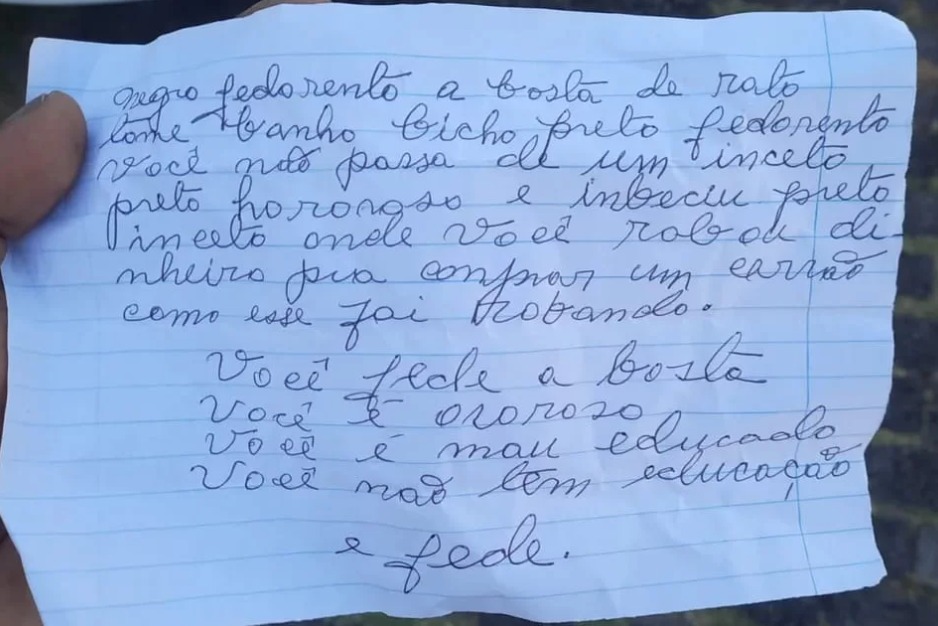 negro fedorento a bosta de rato
tome banho bicho preto fedorento
você não passa de um inceto
preto hororoso e inbeciu preto
inceto onde você robou di-
nheiro pra conprar um carrão
como esse foi robando.
Você fede a bosta
Você é ororoso
Você é mau educado
Você não tem educação
e fede.